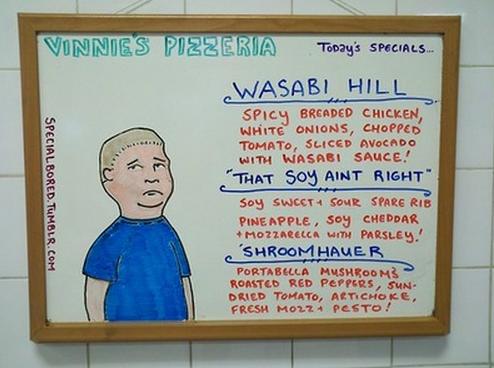 VINNIE'S PIZZERIA
TODAY'S SPECIALS...
WASABI HILL
SPICY BREADED CHICKEN,
WHITE ONIONS, CHOPPED
TOMATO, SLICED AVOCADO
WITH WASABI SAUCE!
"THAT SOY AINT RIGHT"
SOY SWEET + SOUR SPARE RIB
PINEAPPLE, SOY CHEDDAR
+ MOZZARELLA WITH PARSLEY!
'SHROOMHAUER
PORTABELLA MUSHROOMS
ROASTED RED PEPPERS, SUN-
DRIED TOMATO, ARTICHOKE,
FRESH MOZZ + PESTO!
SPECIALBORED.TUMBLR.COM